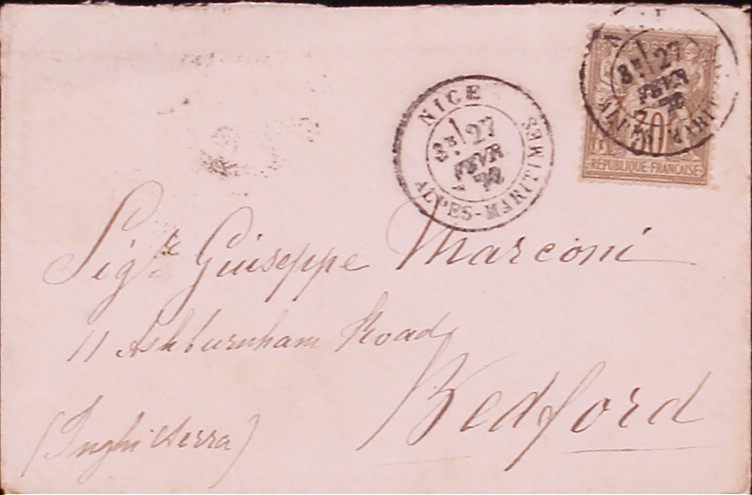 NICE
3E 27
FEVR
78
ALPES-MARITIMES
3E 27
FEVR
78
30
REPUBLIQUE FRANÇAISE
Sigr. Giuseppe Marconi
11 Ashburnham Road
Bedford
(Inghilterra)